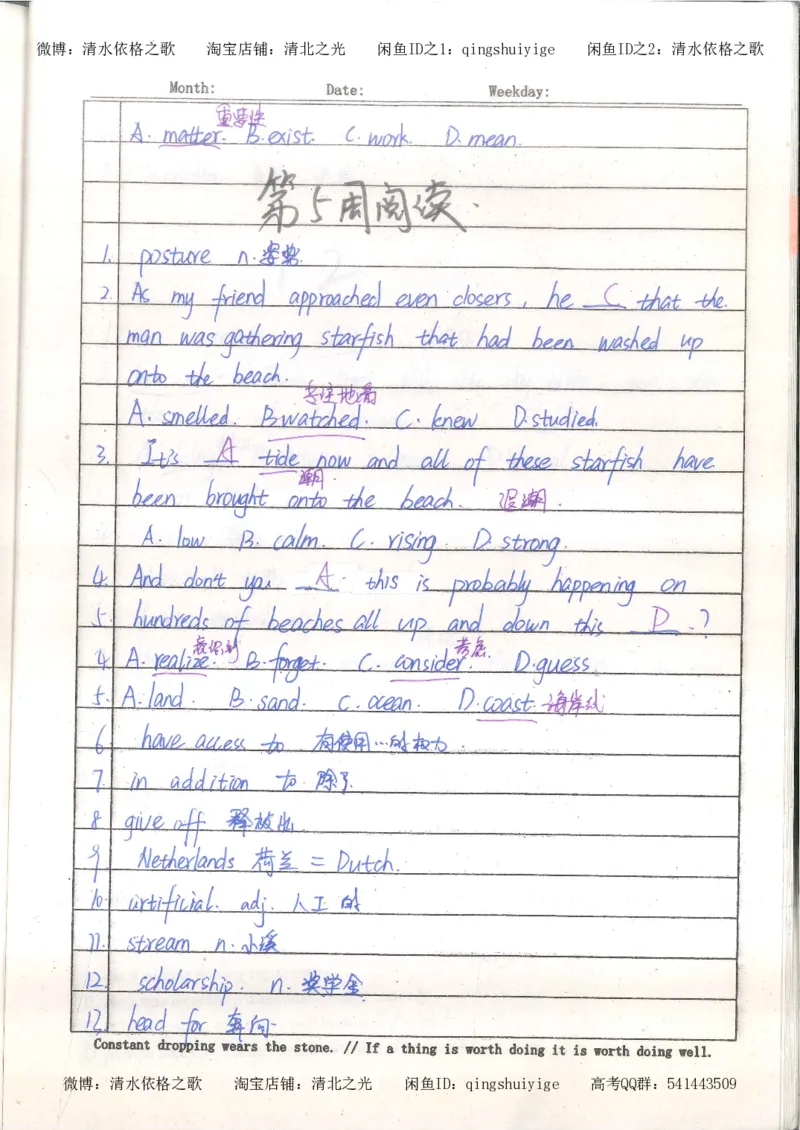 微博：清水依格之歌 淘宝店铺：清北之光 闲鱼ID之1：qingshuiyige 闲鱼ID之2：清水依格之歌
Month: Date: Weekday:
重要性
A. matter. B. exist. C. work. D. mean.
第5周阅读.
1. posture n. 姿势.
2. As my friend approached even closers, he C that the
man was gathering starfish that had been washed up
onto the beach.
专注地看
A. smelled. B watched. C. knew D. studied.
3. It's A tide now and all of these starfish have
潮.
been brought onto the beach. 退潮.
A. low B. calm. C. rising. D. strong.
4. And don't you A. this is probably happening on
5. hundreds of beaches all up and down this D.?
意识到 考虑
4. A. realize. B. forget. C. consider. D. guess.
5. A. land. B. sand. C. ocean. D. coast. 海岸线
6. have access to 有使用…的权力.
7. in addition to 除了.
8 give off 释放出.
9. Netherlands 荷兰 = Dutch.
10. artificial. adj. 人工的
11. stream n. 小溪
12. scholarship. n. 奖学金.
13. head for 奔向
Constant dropping wears the stone. // If a thing is worth doing it is worth doing well.
微博：清水依格之歌 淘宝店铺：清北之光 闲鱼ID：qingshuiyige 高考QQ群：541443509